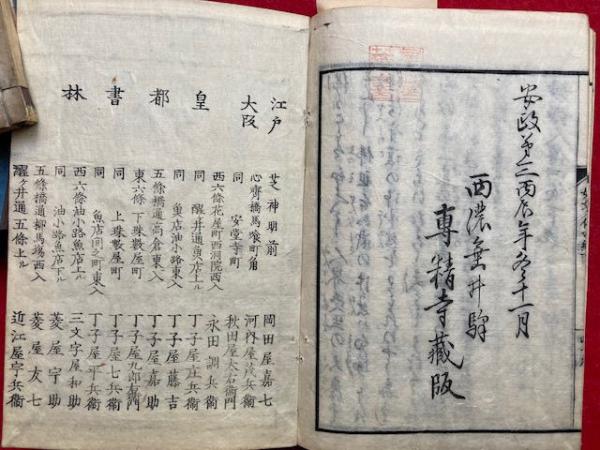 安政第三丙辰年冬十一月
西濃垂井駅
専精寺藏版
江戸 芝神明前 岡田屋嘉七
大阪 心齋橋馬喰町角 河内屋茂兵衞
同 安堂寺町 秋田屋太右衞門
皇都書林
西六條花屋町西洞院西入 永田調兵衞
同 醒井通魚店上ル 丁子屋庄兵衞
同 魚店油小路東入 丁子屋藤吉
五條橋通高倉東入 丁子屋嘉助
東六條下珠數屋町 丁子屋九郎右衞門
同 上珠數屋町 丁子屋七兵衞
同 魚店間之町東入 丁子屋平兵衞
西六條油小路魚店下ル 三文字屋和助
同 油小路魚店上ル 菱屋宇助
五條橋通柳馬場西入 菱屋友七
醒ヶ井通五條上ル 近江屋宇兵衞